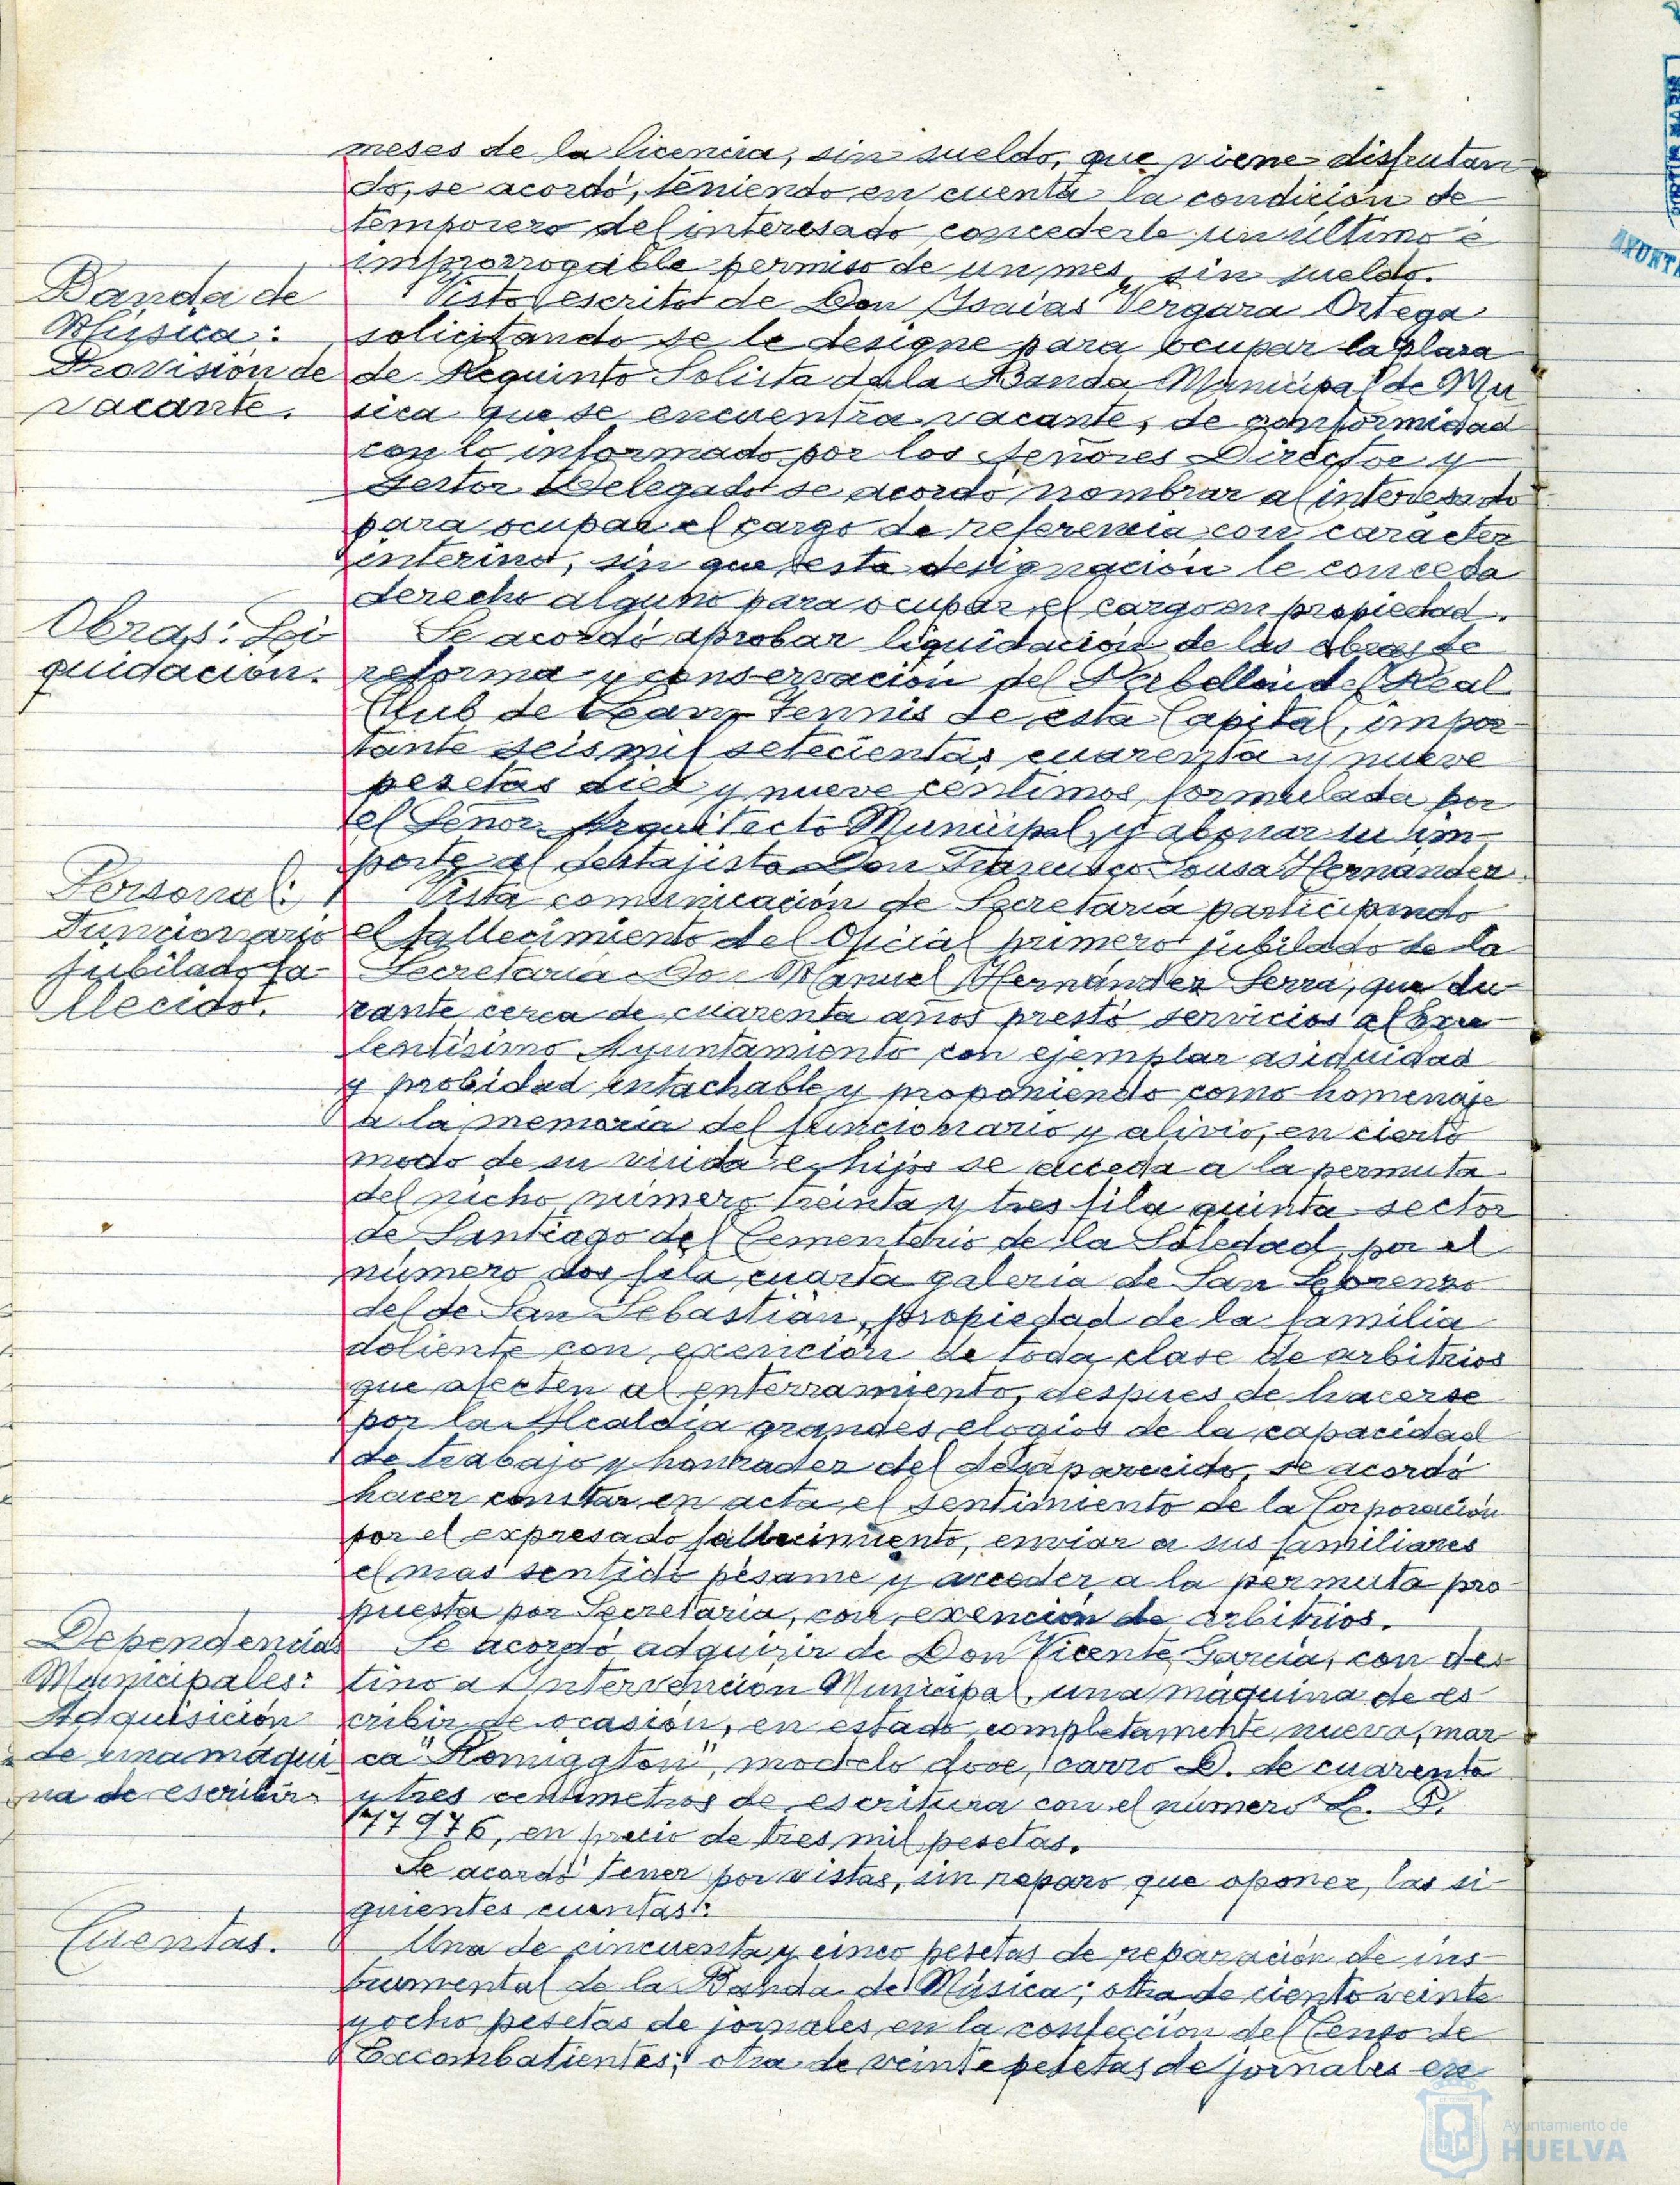 meses de la licencia, sin sueldo, que viene disfrutan
do, se acordó, teniendo en cuenta la condición de
temporero del interesado concederle un último é
improrrogable permiso de un mes, sin sueldo.
Banda de
Música:
Provisión de
vacante.
Visto escrito de Don Isaias Vergara Ortega
solicitando se le designe para ocupar la plaza
de Requinto Solista de la Banda Municipal de Mú
sica que se encuentra vacante, de conformidad
con lo informado por los señores Director y
Gestor Delegado se acordó nombrar al interesado
para ocupar el cargo de referencia con carácter
interino, sin que esta designación le conceda
derecho alguno para ocupar el cargo en propiedad.
Obras: Li
quidación.
Se acordó aprobar liquidación de las obras de
reforma y conservación del Pabellón del Real
Club de Lawn-Tennis de esta Capital, impor-
tante seis mil setecientas cuarenta y nueve
pesetas diez y nueve centimos, formulada por
el Señor Arquitecto Municipal, y abonar su im-
porte al destajista Don Francisco Sousa Hernandez.
Personal:
Funcionario
jubilado fa-
llecido.
Vista comunicación de Secretaría participando
el fallecimiento del Oficial primero jubilado de la
Secretaría Do. Manuel Hernández Serra, que du-
rante cerca de cuarenta años prestó servicios al Exce-
lentísimo Ayuntamiento con ejemplar asiduidad
y probidad intachable y proponiendo como homenaje
a la memoria del funcionario y alivio, en cierto
modo de su viuda e hijos se acceda a la permuta
del nicho número treinta y tres fila quinta sector
de Santiago del Cementerio de la Soledad, por el
número dos fila cuarta galeria de San Lorenzo
del de San Sebastián, propiedad de la familia
doliente con exención de toda clase de arbitrios
que afecten al enterramiento, despues de hacerse
por la Alcaldía grandes elogios de la capacidad
de trabajo y honradez del desaparecido, se acordó
hacer constar en acta el sentimiento de la Corporación
por el expresado fallecimiento, enviar a sus familiares
el mas sentido pésame y acceder a la permuta pro-
puesta por Secretaría, con exención de arbitrios.
Dependencias
Municipales:
Adquisición
de una máqui-
na de escribir.
Se acordó adquirir de Don Vicente García, con des-
tino a Intervención Municipal, una máquina de es
cribir de ocasión, en estado completamente nuevo, mar
ca "Remiggton", modelo doce, carro D. de cuarenta
y tres centimetros de escritura con el número L. P.
77976, en precio de tres mil pesetas.
Se acordó tener por vistas, sin reparo que oponer, las si-
guientes cuentas:
Cuentas.
Una de cincuenta y cinco pesetas de reparación de ins-
trumental de la Banda de Música; otra de ciento veinte
y ocho pesetas de jornales en la confección del Censo de
Excombatientes; otra de veinte pesetas de jornales en
Ayuntamiento de
HUELVA